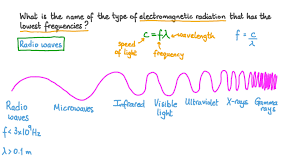 What is the name of the type of electromagnetic radiation that has the
lowest frequencies?
Radio waves
c = fλ
wavelength
speed of light
frequency
f = c/λ
Radio waves
Microwaves
Infrared
Visible light
Ultraviolet
X-rays
Gamma rays
f < 3×10⁹ Hz
λ > 0.1 m